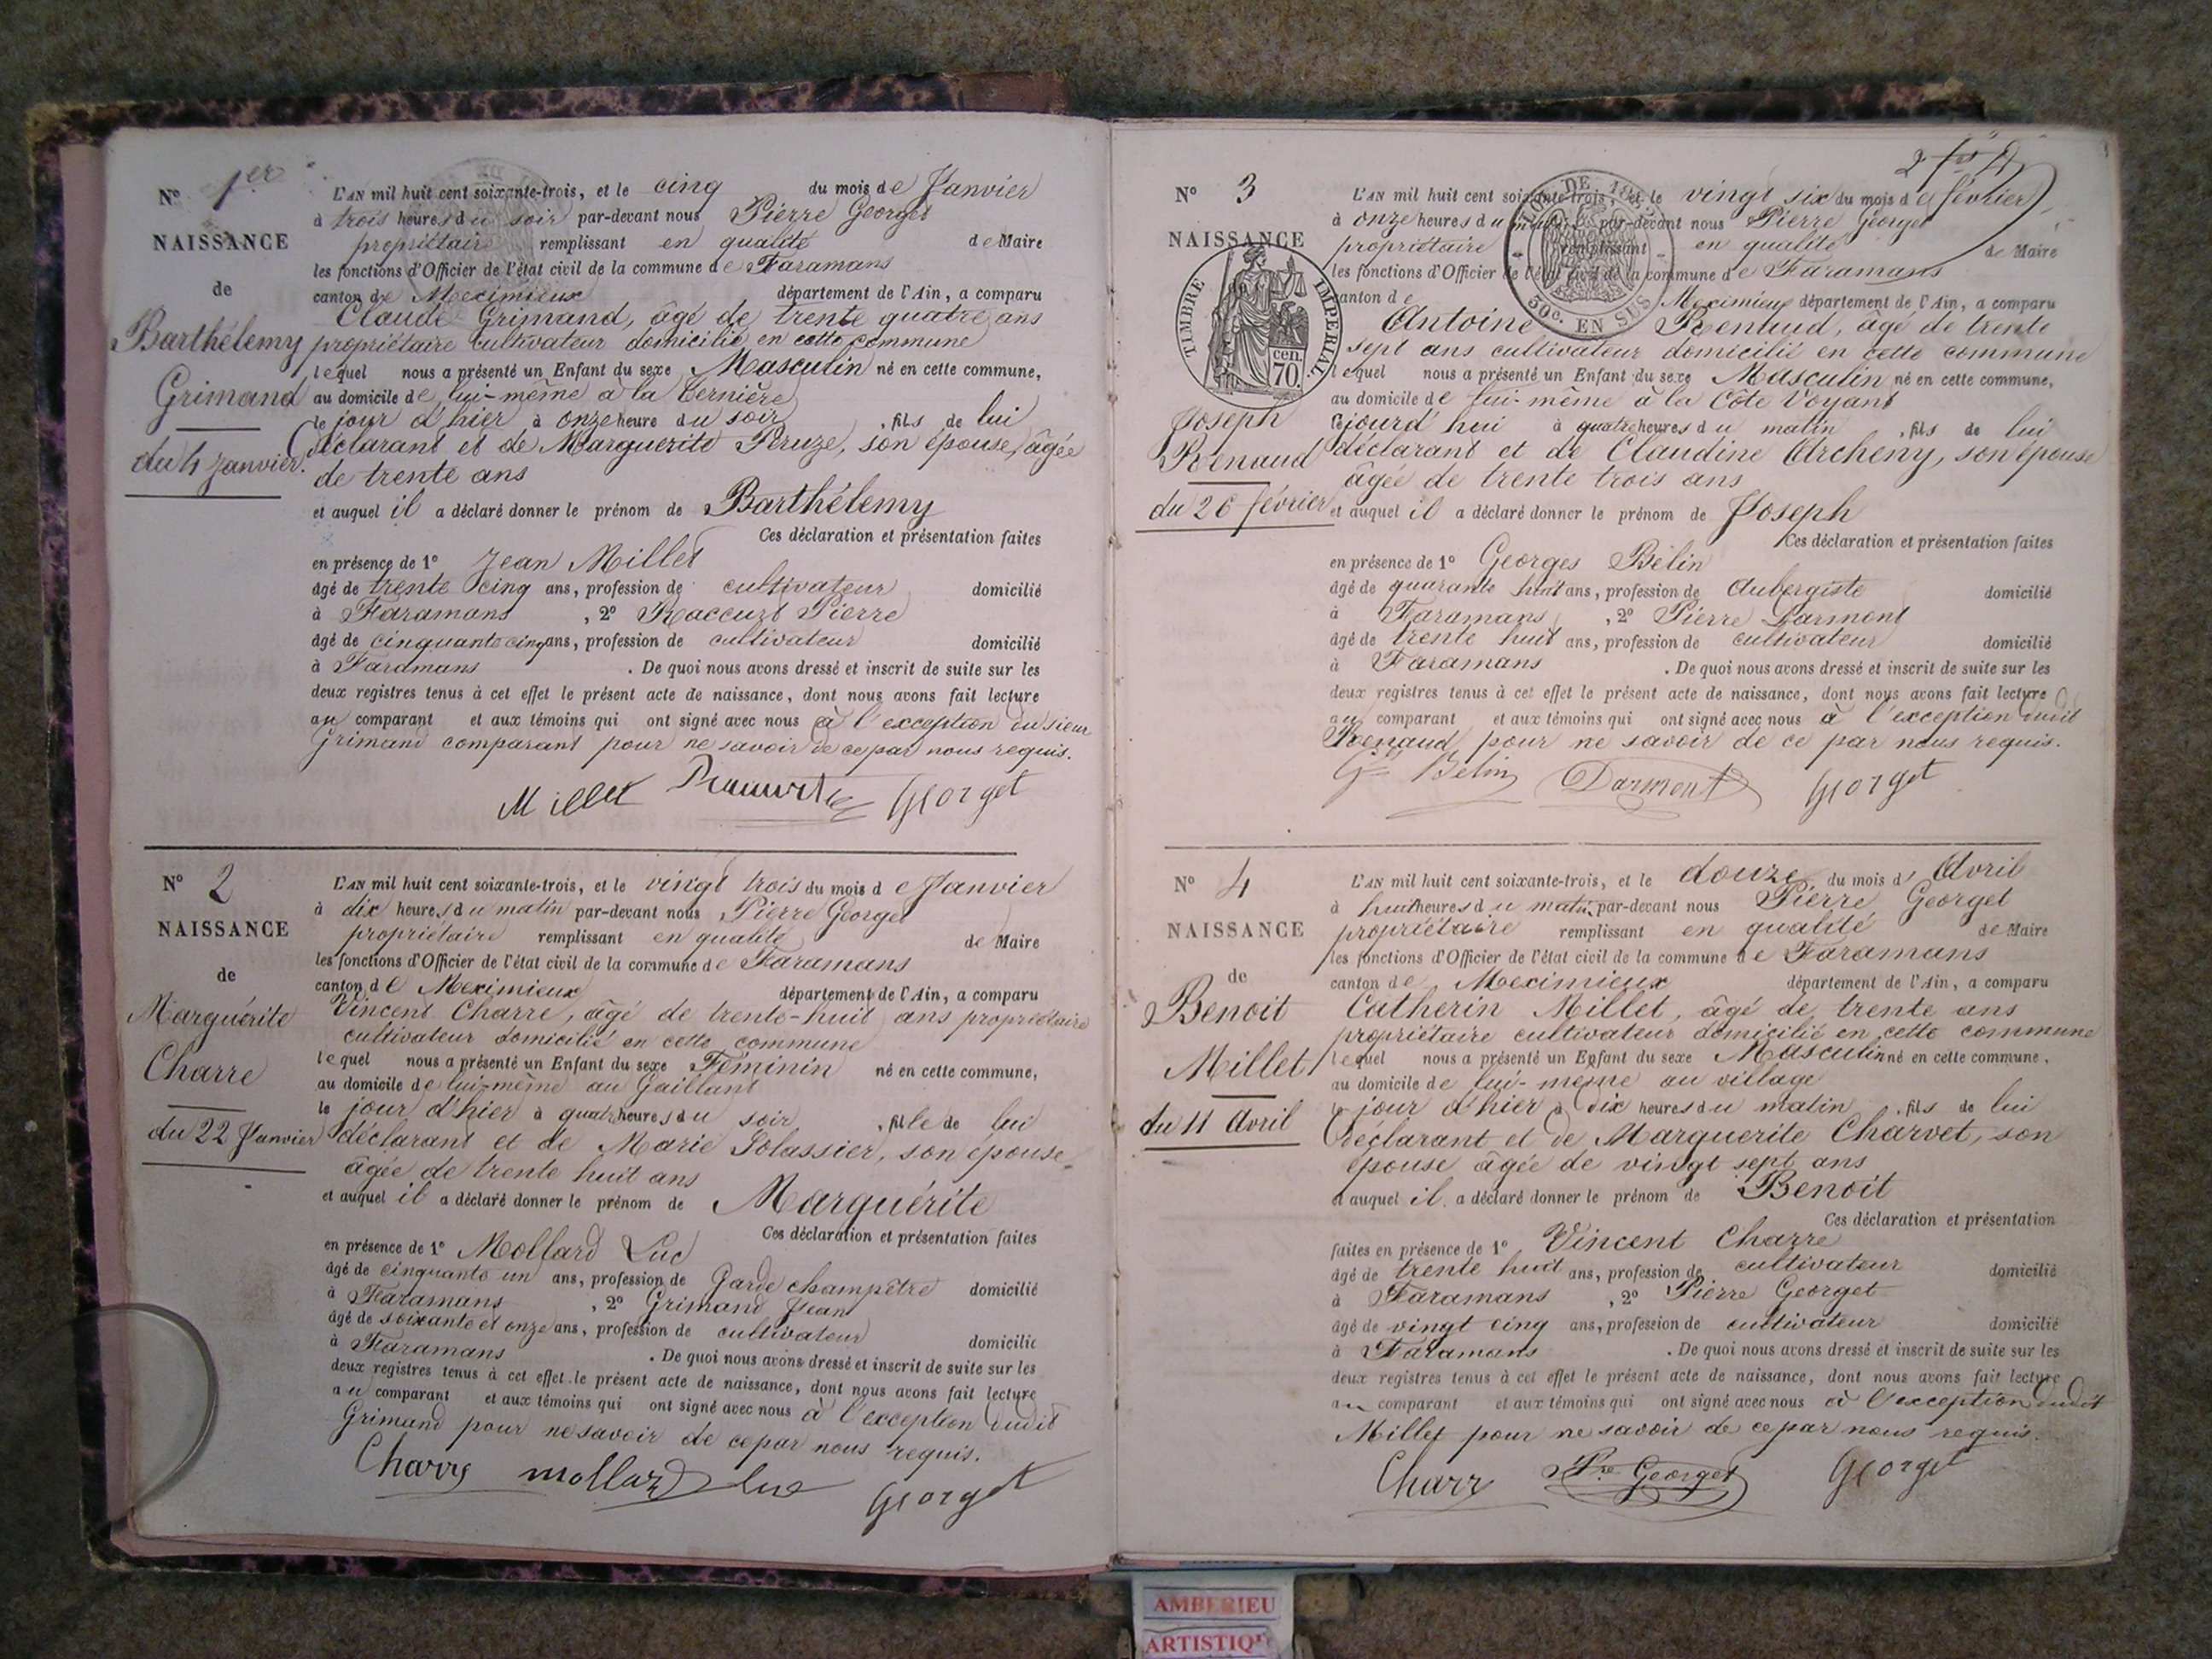 N° 1er
NAISSANCE
de
Barthélemy
Grimand
du 4 Janvier.
L'AN mil huit cent soixante-trois, et le cinq du mois de Janvier
à trois heures du soir par-devant nous Pierre Georget
propriétaire remplissant en qualité de Maire
les fonctions d'Officier de l'état civil de la commune de Faramans
canton de Meximieux département de l'Ain, a comparu
Claude Grimand, âgé de trente quatre ans
propriétaire cultivateur domicilié en cette commune
lequel nous a présenté un Enfant du sexe Masculin né en cette commune,
au domicile de lui-même à la
le jour d'hier à onze heure du soir, fils de lui
déclarant et de Marguerite Peruze, son épouse, âgée
de trente ans
et auquel il a déclaré donner le prénom de Barthélemy
Ces déclaration et présentation faites
en présence de 1° Jean Millet
âgé de trente cinq ans, profession de cultivateur domicilié
à Faramans, 2° Raccurt Pierre
âgé de cinquante cinq ans, profession de cultivateur domicilié
à Faramans . De quoi nous avons dressé et inscrit de suite sur les
deux registres tenus à cet effet le présent acte de naissance, dont nous avons fait lecture
au comparant et aux témoins qui ont signé avec nous à l'exception du sieur
Grimand comparant pour ne savoir de ce par nous requis.
Millet Georget
N° 2
NAISSANCE
de
Marguérite
Charre
du 22 Janvier
L'AN mil huit cent soixante-trois, et le vingt trois du mois de Janvier
à dix heures du matin par-devant nous Pierre Georget
propriétaire remplissant en qualité de Maire
les fonctions d'Officier de l'état civil de la commune de Faramans
canton de Meximieux département de l'Ain, a comparu
Vincent Charre, âgé de trente-huit ans propriétaire
cultivateur domicilié en cette commune
lequel nous a présenté un Enfant du sexe Féminin né en cette commune,
au domicile de lui-même au Gaillant
le jour d'hier à quatre heures du soir, fille de lui
déclarant et de Marie Polassier, son épouse
âgée de trente huit ans
et auquel il a déclaré donner le prénom de Marguérite
Ces déclaration et présentation faites
en présence de 1° Mollard Luc
âgé de cinquante un ans, profession de Garde champêtre domicilié
à Faramans, 2° Grimand Jean
âgé de soixante et onze ans, profession de cultivateur domicilié
à Faramans . De quoi nous avons dressé et inscrit de suite sur les
deux registres tenus à cet effet le présent acte de naissance, dont nous avons fait lecture
au comparant et aux témoins qui ont signé avec nous à l'exception dudit
Grimand pour ne savoir de ce par nous requis.
Charre mollard luc Georget
N° 3
NAISSANCE
TIMBRE IMPERIAL
cen.
70.
Joseph
Renaud
du 26 février
30c. EN SUS
L'AN mil huit cent soixante-trois, et le vingt six du mois de février
à onze heures du matin par-devant nous Pierre Georget
propriétaire remplissant en qualité de Maire
les fonctions d'Officier de l'état civil de la commune de Faramans
canton de Meximieux département de l'Ain, a comparu
Antoine Renaud, âgé de trente
sept ans cultivateur domicilié en cette commune
lequel nous a présenté un Enfant du sexe Masculin né en cette commune,
au domicile de lui-même à la Côte Voyant
cejourd'hui à quatre heures du matin, fils de lui
déclarant et de Claudine Archeny, son épouse
âgée de trente trois ans
et auquel il a déclaré donner le prénom de Joseph
Ces déclaration et présentation faites
en présence de 1° Georges Bélin
âgé de quarante huit ans, profession de Aubergiste domicilié
à Faramans, 2° Pierre Darmont
âgé de trente huit ans, profession de cultivateur domicilié
à Faramans . De quoi nous avons dressé et inscrit de suite sur les
deux registres tenus à cet effet le présent acte de naissance, dont nous avons fait lecture
au comparant et aux témoins qui ont signé avec nous à l'exception dudit
Renaud pour ne savoir de ce par nous requis.
Belin Darmont Georget
N° 4
NAISSANCE
de
Benoit
Millet
du 11 Avril
L'AN mil huit cent soixante-trois, et le douze du mois d' Avril
à huit heures du matin par-devant nous Pierre Georget
propriétaire remplissant en qualité de Maire
les fonctions d'Officier de l'état civil de la commune de Faramans
canton de Meximieux département de l'Ain, a comparu
Catherin Millet, âgé de trente ans
propriétaire cultivateur domicilié en cette commune
lequel nous a présenté un Enfant du sexe Masculin né en cette commune,
au domicile de lui-même au village
le jour d'hier à dix heures du matin, fils de lui
déclarant et de Marguerite Charvet, son
épouse âgée de vingt sept ans
et auquel il a déclaré donner le prénom de Benoit
Ces déclaration et présentation
faites en présence de 1° Vincent Charre
âgé de trente huit ans, profession de cultivateur domicilié
à Faramans, 2° Pierre Georget
âgé de vingt cinq ans, profession de cultivateur domicilié
à Faramans . De quoi nous avons dressé et inscrit de suite sur les
deux registres tenus à cet effet le présent acte de naissance, dont nous avons fait lecture
au comparant et aux témoins qui ont signé avec nous à l'exception dudit
Millet pour ne savoir de ce par nous requis.
Charr Pre Georget Georget
AMBERIEU
ARTISTIQU